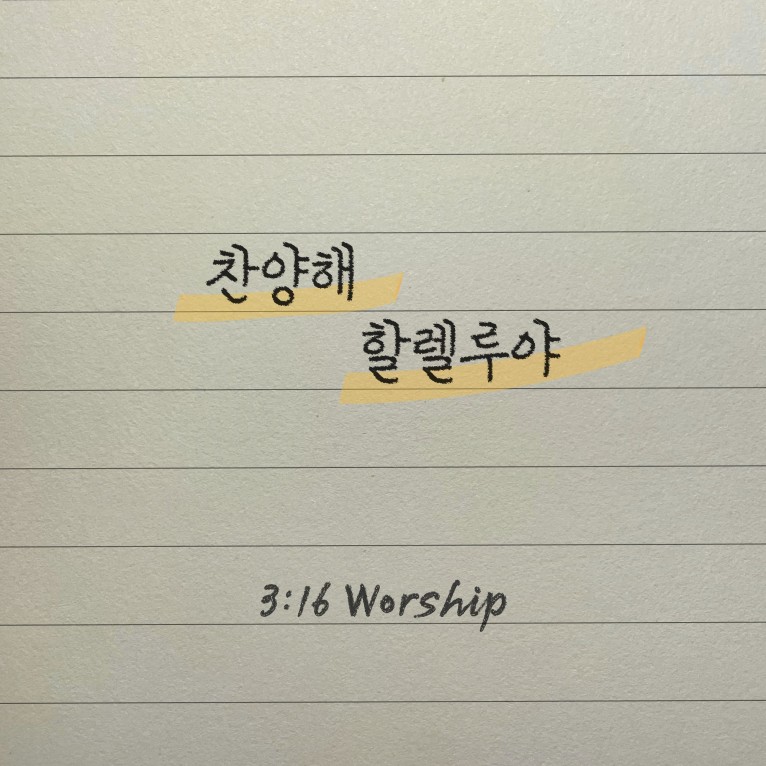 찬양해
할렐루야
3:16 Worship